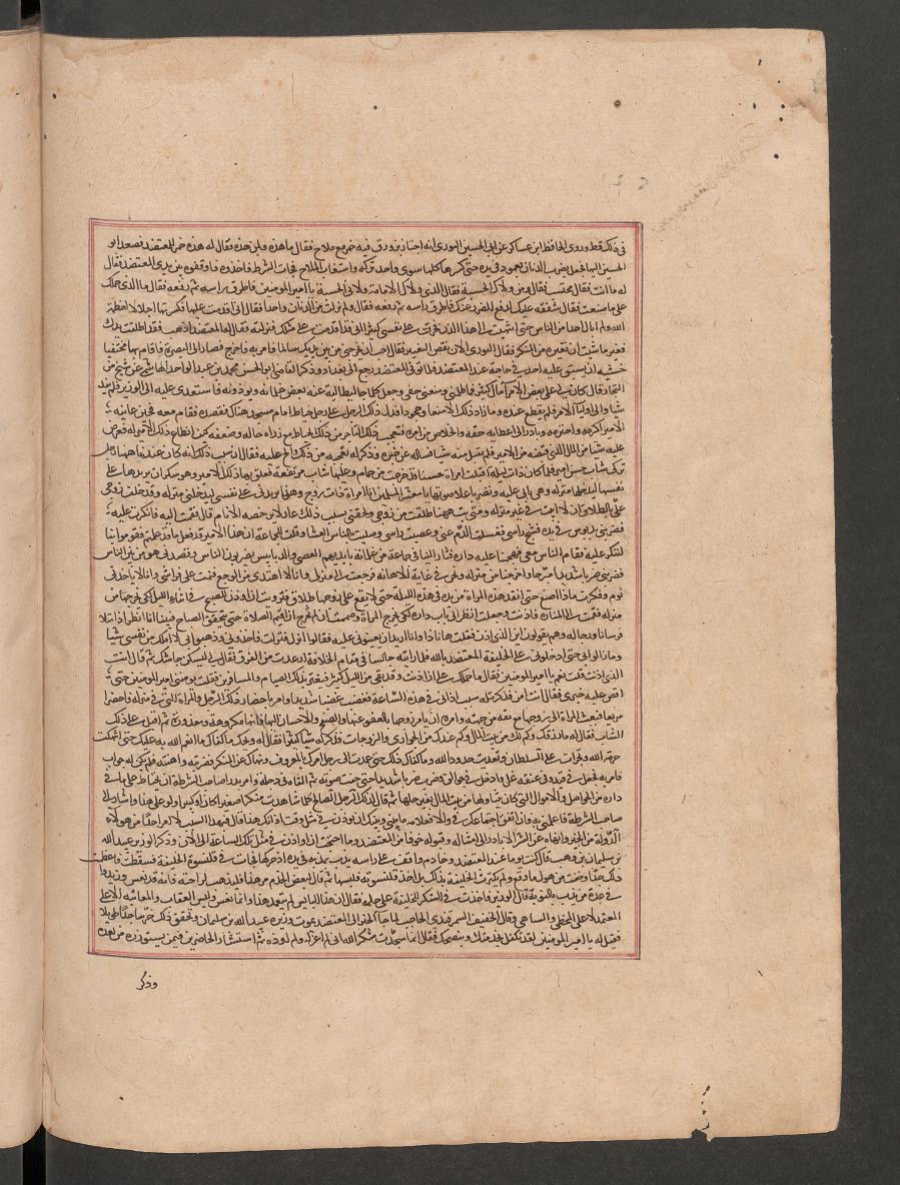 في ذلك قط وروى الحافظ ابن عساكر عن ابي الحسين النوري انه اجتاز بزورق فيه خمر مع ملاح فقال ما هذه ولمن هذه فقال له هذه خمر للمعتضد فصعد ابو
الحسين اليها فجعل يضرب الدنان بعمود في يده حتى كسرها كلها سوى واحد تركه واستغاث الملاح فجات الشرط فاخذوه فاوقفوه بين يدي المعتضد فقال
له ما انت فقال محتسب فقال ومن ولاك الحسبة فقال الذي ولاك الامامة ولاني الحسبة يا امير المومنين فاطرق براسه ثم رفعه فقال ما الذي حملك
على ما صنعت فقال شفقة عليك لدفع الضرر عنك فاطرق براسه ثم رفعه فقال ولم تركت من الدنان واحدا فقال اني اقدمت عليها فكسرتها اجلالا لعظمة
الله ولم ابال احدا من الناس حتى انتهيت الى هذا الدن فخفت على نفسي كبرا اني قد اقدمت على مثلك فتركته فقال له المعتضد اذهب فقد اطلقت يدك
فغير ما شئت ان تغيره من المنكر فقال النوري الان نقص التغيير فقال احب ان تخرجني من بين يديك سالما فامر به فاخرج فصار الى البصرة فاقام بها مختفيا
خشية ان يستشق عليه احد في حاجة عند المعتضد فلما توفي المعتضد رجع الى بغداد وذكر القاضي ابو الحسن محمد بن عبد الواحد الهاشمي عن شيخ من
التجار قال كان لي على بعض الامراء مال كثير فماطلني ومنعني حقي وجعل كلما جيت اطالبه عنه يعض غلمانه ويوذونه فاستعدى عليه الى الوزير فلم يفد
شيا والى اوليا الامر فلم يقطع عنده وما زاد ذلك الا منعا وجحودا فدل ذلك الرجل على رجل خياط امام مسجد هناك فقصده فقام معه فحين عاينه
الامير اكرمه واحترمه وبادر الى اعطايه حقه والخلاص من امره فتعجب ذلك التاجر من ذلك الخياط مع رثاه حاله وضعفه كيف انطاع ذلك الامير له فعرض
عليه شيا من المال الذي قبضه من الامير فلم يقبل منه شيا فساله عن خبره وذكر له تعجبه من ذلك والح عليه فقال ان سبب ذلك انه كان عندنا هاهنا رجل
تركي شاب حسن امير فلما كان ذات يوم اقبلت امراة حسنا قد خرجت من حمام وعليها ثياب مرتفعة فعلق بها ذلك الامير وهو سكران يريدها على
نفسها ليدخلها منزله وهي تابى عليه وتصيح باعلا صوتها يا معشر المسلمين انا امراة ذات زوج وهذا يريدني على نفسي ليدخلني منزله وقد حلف زوجي
علي بالطلاق ان لا ابيت في غير منزله ومتى بت ههنا طلقت من زوجي ولحقني بسبب ذلك عار لا يرحضه الانام قال فقمت اليه فانكرت عليه
فضربني بدبوس في يده فشج راسي فغسلت الدم عني وعصبت راسي وصليت بالناس العشا وقلت للجماعة ان هذا الامير قد فعل ما قد علمتم فقوموا بنا
لننكر عليه فقام الناس معي فهجمنا عليه داره فثار الينا في جماعة من غلمانه بايديهم العصي والدبابيس يضربون الناس وقصدني هو من بين الناس
فضربني ضربا شديدا مبرحا واخرجنا من منزله ونحن في غاية الاهانة فرجعت الى منزلي وانا لا اهتدي من الوجع فنمت على فراشي وانا لا ياخذني
نوم وفكرت ماذا اصنع حتى انقذ هذه المراة من يده في هذه الليلة حتى لا يقع على زوجها طلاق فثرت ان اوذن الصبح في اثناء الليل لكي يخرجها من
منزله فقمت الى المنارة فاذنت وجعلت انظر الى باب داره لكي تخرج المراة وصممت ان لم تخرج ان اقيم الصلاة حتى يتحقق الصباح فبينا انا انظر اذا امتلا
فرسانا ورجالة وهم يقولون اين الذي اذن فقلت هاانذا وانا اريد ان يعينوني عليه فقالوا انزل فنزلت فاخذوني وذهبوا بي لا املك من نفسي شيا
وما زالوا بي حتى ادخلوني على الخليفة المعتضد بالله فلما رايته جالسا في مقام الخلافة ارعدت من الفرق فقال لي ليسكن جاشك ثم قال انت
الذي اذنت قلت نعم يا امير المومنين فقال ما حملك على اذا اذنت وقد بقي من الليل كثير فيغتر بذلك الصيام والمسافرين فقلت يومنني امير المومنين حتى
اقص عليه خبري فقال انت امن فذكرت له سبب اذاني في هذه الساعة فغضب غضبا شديدا وامر باحضار ذلك الرجل والمراة التي في منزله فاحضرا
سريعا فبعث المراة الى زوجها مع ثقة من جهته وامره ان يامر زوجها بالعفو عنها والصفح والاحسان اليها فانها مكرهة ومعذورة ثم اقبل على ذلك
الشاب فقال له ما رزقك وكم لك من بيت المال وكم عندك من الجواري والزوجات فذكر له شيا كثيرا فقال له ويحك ما كفاك ما انعم الله به عليك حتى انتهكت
حرمة الله وتجرات على السلطان وتعديت حدود الله وما كفاك ذلك حتى عمدت الى رجل امرك بالمعروف ونهاك عن المنكر فضربته واهنته فلم يكن له جواب
فامر به فجعل في قيد وفي عنقه غل وادخل في جوالق وضرب ضربا شديدا حتى خفت صوته ثم القاه في دجلة وامر بدرا صاحب الشرطة ان يحتاط على ما في
داره من الحواصل والاموال التي كان يتناولها من بيت المال بغير حلها ثم قال لذلك الرجل الصالح كلما شاهدت منكرا صغيرا كان او كبيرا ولو على هذا واشار الى
صاحب الشرطة فاعلمني به فان اتفق اجتماعك بي والا فعلامة ما بيني وبينك ان توذن في مثل وقت اذانك هذا قال فلهذا السبب لا امر احدا من هولاء
الدولة من الجند وانهاه عن الشر الا بادر الى امتثاله وقبوله خوفا من المعتضد وما احتجت ان اوذن في مثل تلك الساعة الى الان وذكر الوزير عبيد الله
بن سليمان بن وهب قال كنت يوما عند المعتضد وخادم واقف على راسه يذب بمذبة في يده اذ حركها فجات في قلنسوة الخليفة فسقطت فاعظمت
ذلك جدا وخفت من هول ما وقع ولم يكترث الخليفة بذلك بل اخذ قلنسوته فلبسها ثم قال لبعض الخدم مر هذا فليذهب لراحته فانه قد نعس وزيدوا
في عدة من يذب بالنوبة قال الوزير فاخذت في الشكر للخليفة على حلمه فقال ان هذا البايس لم يتعمد هذا وانما نعس وليس العقاب والمعاتبة الا على
المتعمد لا على المخطي والساهي وقال الخفيف السمرقندي الحاجب لما جا الخبر الى المعتضد بموت وزيره عبيد الله بن سليمان وتحقق ذلك خر ساجدا طويلا
فقيل له يا امير المومنين لقد كان يخدمك وينصحك فقال انما سجدت شكرا لله اني لم اعزله ولم اوذه ثم استشار الحاضرين فيمن يستوزره من بعده
وذكر